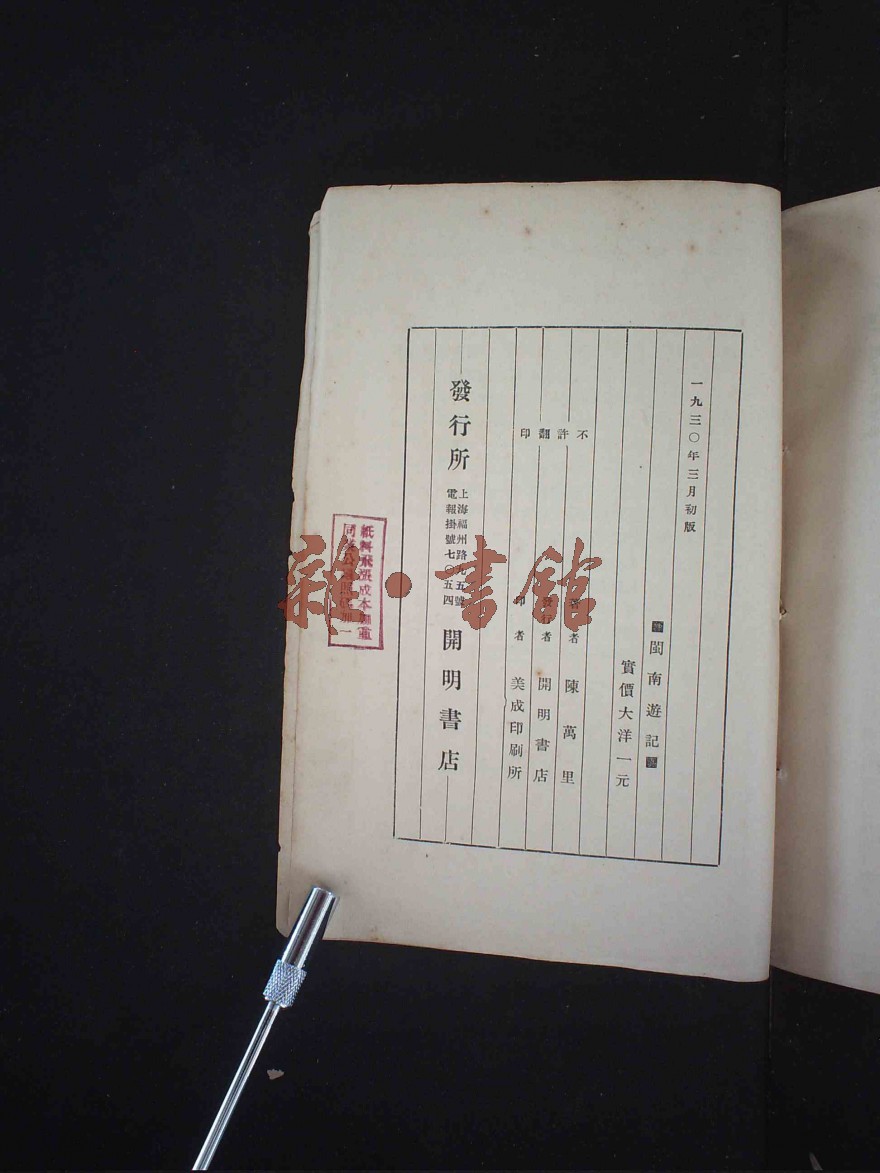 一九三〇年三月初版
閩南遊記
實價大洋一元
不許翻印
著者 陳萬里
發行者 開明書店
印者 美成印刷所
發行所
上海福州路九五號
電報掛號七〇五四
開明書店
紙料飛漲成本加重
雜·書館